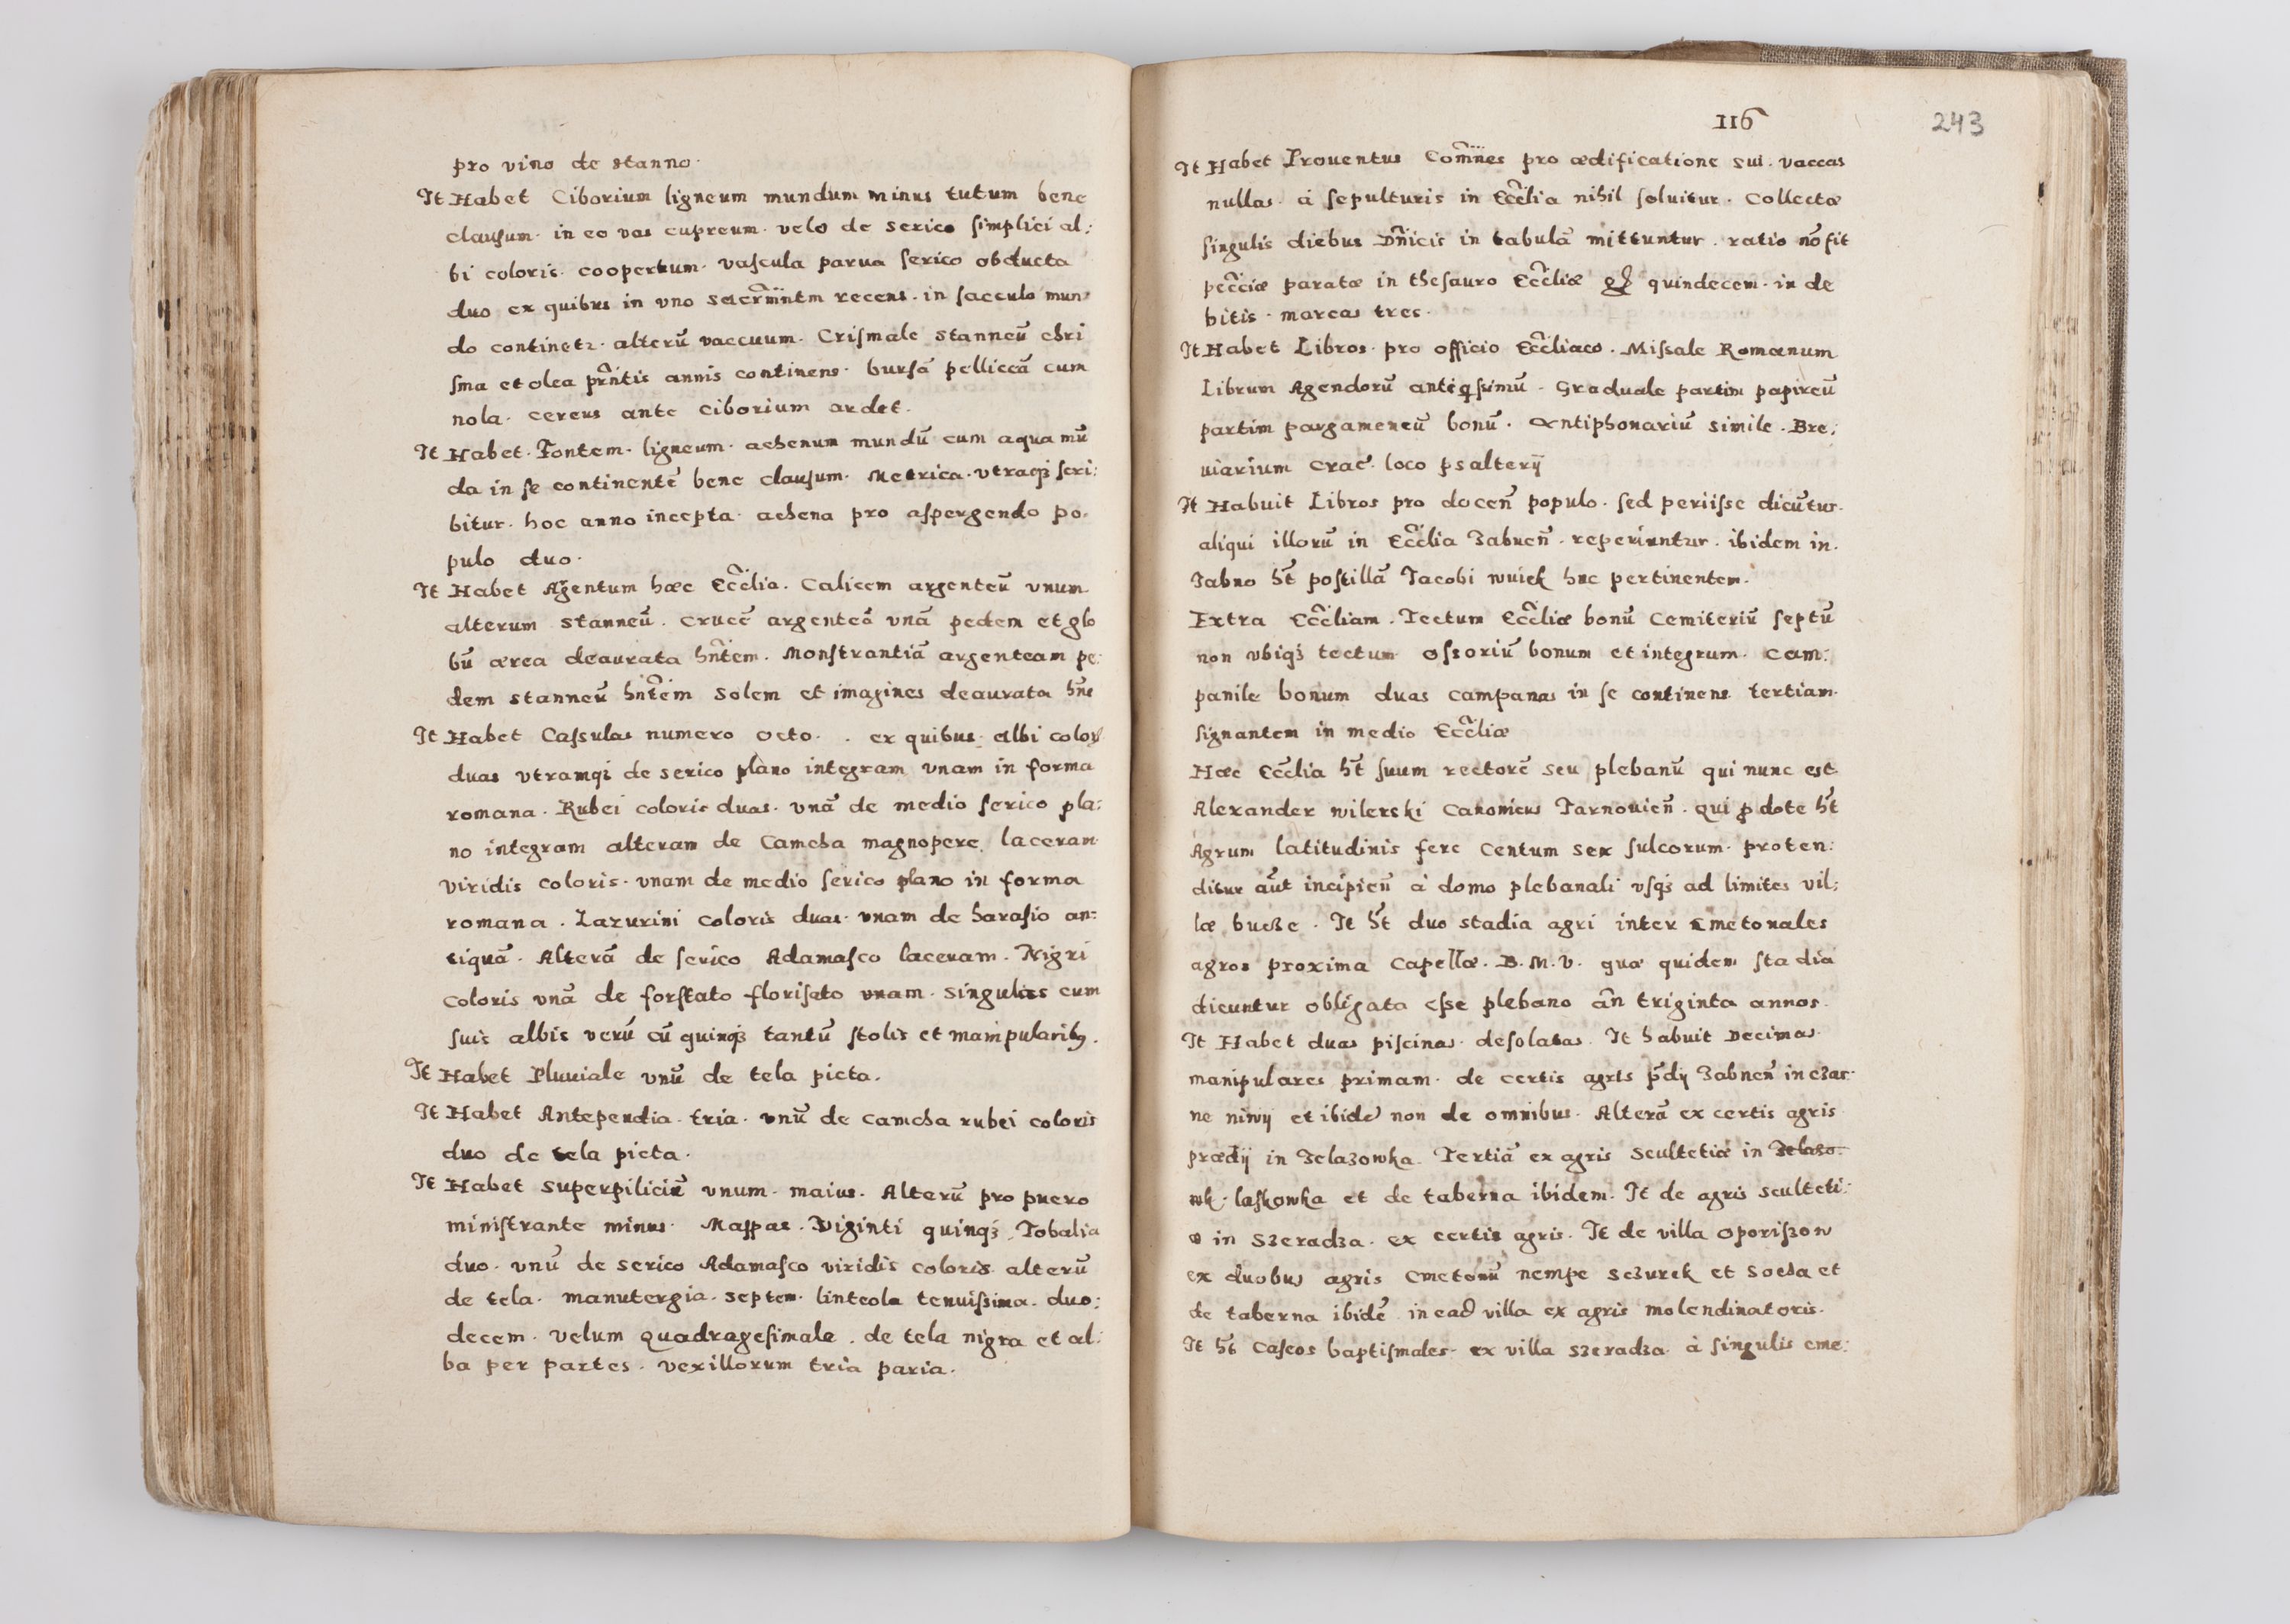 pro vino de stanno.
It Habet Ciborium ligneum mundum minus tutum bene
clauſum. in eo vas cupreum. velo de serico ſimplici al:
bi coloris. coopertum. vaſcula parua ſerico obducta
duo ex quibus in vno recens. in ſacculo mun:
do continetr. alterū vaccuum. Criſmale stanneū chri
ſma et olea pr̄ntis annis continens. burſā pelliccā cum
nola. cereus ante Ciborium ardet.
It Habet. Fontem. ligneum. ahenum mundū cum aqua mū
da in ſe continentē bene clauſum. Metrica. vtraqȝ ſcri:
bitur. hoc anno incepta. achena pro aſpergendo po.
pulo duo.
It Habet Argentum hæc Eccl̃ia. Calicem argenteū vnum
alterum stanneū. crucē argenteā vnā pedem et glo
bū ærea deaurata hñtem. Monſtrantiā argenteam pe:
dem stanneū hñtem Solem et imagines deaurata hñt
It Habet Caſsulas numero octo. . ex quibus albi color
duas vtramqi de serico plano integram vnam in forma
romana. Rubei coloris duas. vnā de medio ſerico pla:
no integram alteram de Camcha magnopere laceram
viridis coloris. vnam de medio ſerico plano in forma
romana. Lazurini coloris duas. vnam de haraſio an:
tiquā. Alterā de ſerico Adamaſco laceram. Nigri
coloris vnā de forſtato floriſato vnam. Singulas cum
ſuis albis verū cū quinqȝ tantū ſtolis et manipularibꝯ.
It Habet Pluuiale vnū de tela picta.
It Habet Antependia. tria. vnū de camcha rubei coloris
duo de tela picta.
It Habet Superpiliciū vnum. maius. Alterū pro puero
miniſtrante minus. Mappas. Viginti quinqȝ. Tobalia
duo. vnū de serico Adamaſco viridis coloris alterū
de tela. manutergia. septem. linteola tenuiſsima. duo:
decem. velum quadrageſimale. de tela nigra et al:
ba per partes. vexillorum tria paria.
116
243
It Habet Prouentus Com̄nes pro ædificatione sui. vaccas
nullas. à ſepulturis in Eccl̃ia nihil ſoluitur. Collectæ
ſingulis diebus Dñicis in tabulā mittuntur. ratio nō fit
pecc̃iæ paratæ in theſauro Eccl̃iæ quindecem. in de
bitis. marcas tres.
It Habet Libros. pro officio Eccl̃iaco. Miſsale Romanum
Librum Agendorū antiqſsimū. Graduale partim papireū
partim pargameneū bonū. Antiphonariū simile. Bre:
uiarium Crac̃. loco psalterÿ
It Habuit Libros pro docen̄ populo. ſed periiſse dicūtur.
aliqui illorū in Eccl̃ia Zabnen̄. reperiuntur. ibidem in.
Zabno h̄t poſtillā Jacobi wuiek huc pertinentem.
Extra Eccl̃iam. Tectum Eccl̃iæ bonū Cemiteriū ſeptū
non vbiqȝ tectum oſsoriū bonum et integrum. Cam:
panile bonum duas campanas in ſe continens tertiam.
ſignantem in medio Eccl̃iæ
Hæc Eccl̃ia h̄t ſuum rectorē seu plebanū qui nunc est
Alexander wilerski Canonicus Tarnouien̄. qui ꝓ dote h̄t
Agrum latitudinis fere Centum sex ſulcorum. proten:
ditur aũt incipien̄ à domo plebanali vſqȝ ad limites vil:
læ bucze. It h̄t duo stadia agri inter cmetonales
agros proxima Capellæ. B. M. V. quæ quidem ſtadia
dicuntur obligata eſse plebano añ triginta annos.
It Habet duas piſcinas. deſolatas. It habuit Decimas.
manipulares primam. de certis agris p̄dÿ Zabnen̄ in czar:
ne niwÿ et ibidē non de omnibus. Alterā ex certis agris
prædÿ in Zelazowka. Tertiā ex agris Scultetiæ in Zelazo
wk. laſkowka et de taberna ibidem. It de agris sculteti:
æ in Szeradza. ex certis agris. It de villa oporiſzow
ex duobus agris Cmetonū nempe sczurek et Socha et
de taberna ibidē in ead villa ex agris molendinatoris.
It h̄t Caſeos baptiſmales. ex villa Szeradza à ſingulis cme: